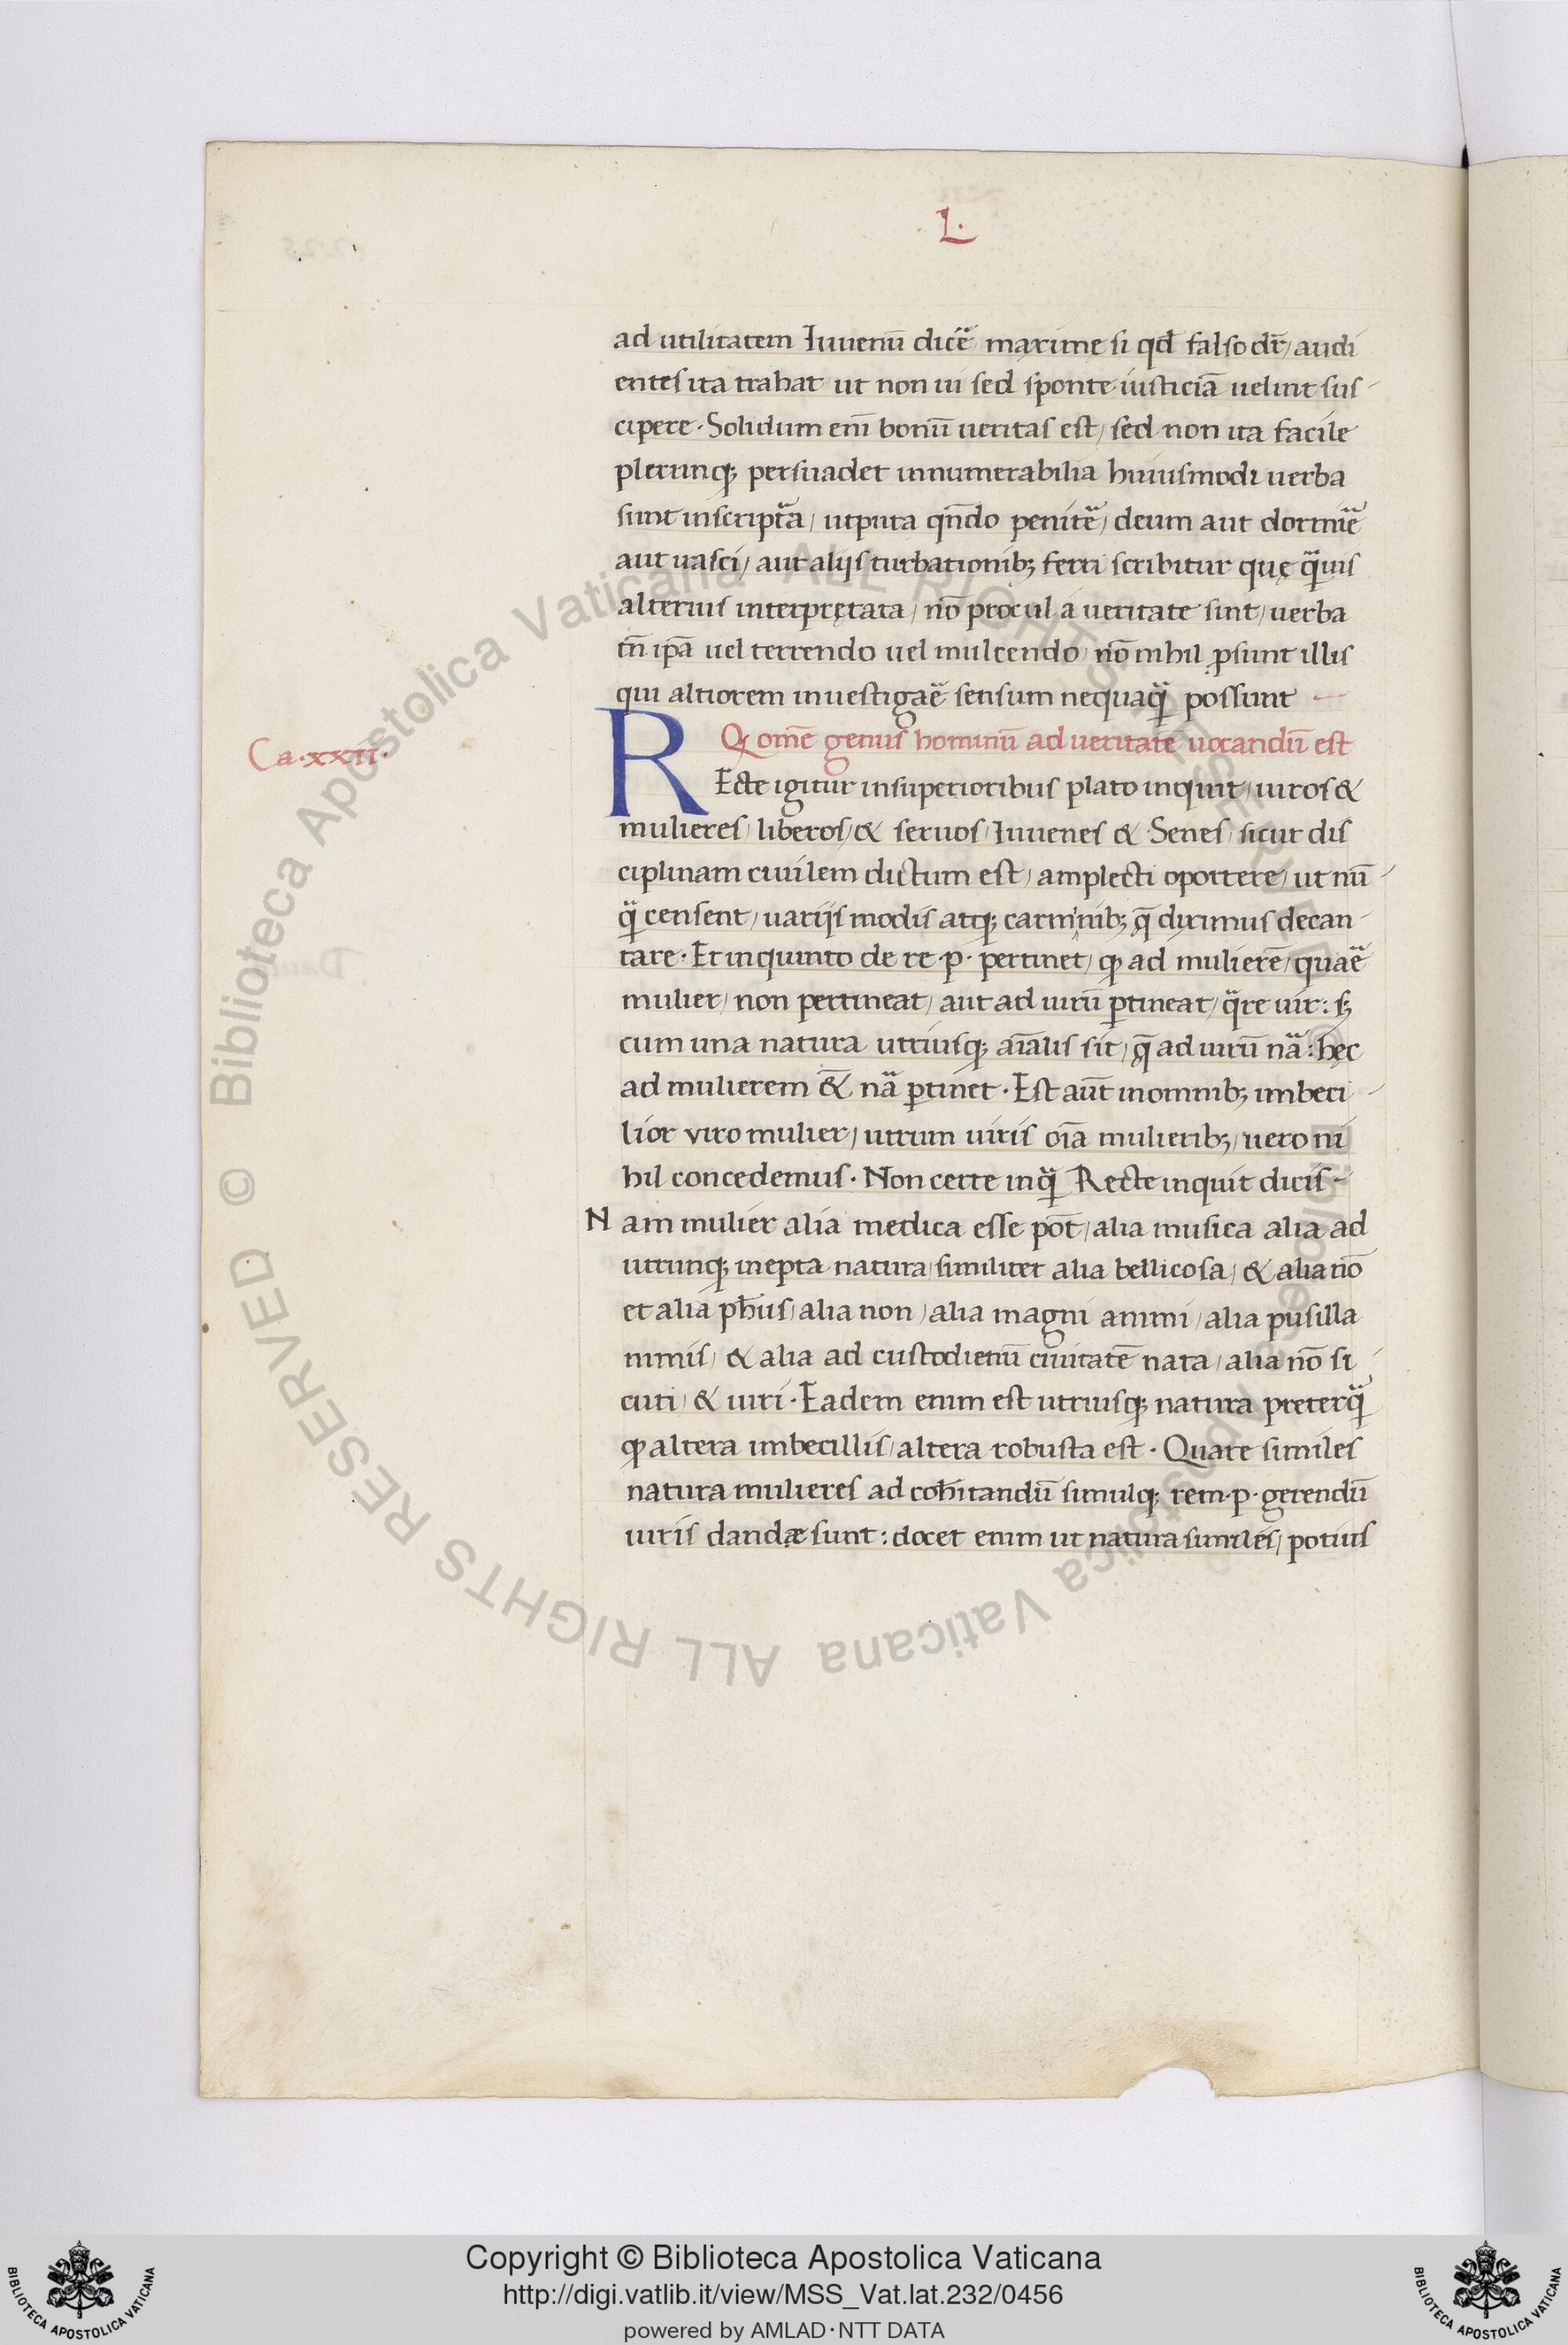 L.
ad utilitatem Iuuenū dicē maxime si qđ falso dr̄/ audi
entes ita trahat ut non ui sed sponte iusticiā uelint sus-
cipere. Solidum enī bonū ueritas est/ sed non ita facile
plerunq; persuadet innumerabilia huiusmodi uerba
sunt in scriptā/ utputa qn̄do penitē/ deum aut dormiē
aut uasci/ aut alijs turbationib; ferri scribitur quę quīuis
alterius interpretata/ nō procul a ueritate sint/ uerba
tn̄ ipā uel terrendo uel mulcendo/ nō nihil ꝓsunt illis
qui altiorem inuestigaē sensum nequaq̄ possunt
Ca. xxii.
Ꝙ omē genus hominū ad ueritatē uocandū est
REcte igitur in superioribus plato inquit/ uiros &
mulieres/ liberos/ & seruos/ Iuuenes & Senes/ sicut dis
ciplinam ciuilem dictum est/ amplecti oportere/ ut nū-
q̄ censent/ uarijs modis atq; carminib; q̄ diximus decan-
tare. Et in quinto de re .p. pertinet/ ꝙ ad mulierē/ quaē
mulier/ non pertineat/ aut ad uirū ꝑtineat/ q̄re uir: s;
cum una natura utriusq; aīalis sit/ q̄ ad uirū nā: hęc
ad mulierem &̄ nā ꝑtinet. Est aūt in omnib; imbeci-
lior viro mulier/ utrum uiris oīa mulierib;/ uero ni
hil concedemus. Non certe inq̄ Recte inquit dicis-
Nam mulier alia medica esse pōt/ alia musica alia ad
utrunq; inepta natura/ similiter alia bellicosa/ & alia nō
et alia ph̄us/ alia non/ alia magni animi/ alia pusilla
nimis/ & alia ad custodienū ciuitatē nata/ alia nō si-
cuti/ & uiri. Eadem enim est utriusq; natura preterq̄
ꝙ altera imbecillis/ altera robusta est. Quare similes
natura mulieres ad coh̄itandū simulq; rem .p. gerendū
uiris dandæ sunt: docet enim ut natura similes/ potius
Copyright © Biblioteca Apostolica Vaticana
http://digi.vatlib.it/view/MSS_Vat.lat.232/0456
powered by AMLAD·NTT DATA
BIBLIOTECA APOSTOLICA VATICANA
BIBLIOTECA APOSTOLICA VATICANA
© Biblioteca Apostolica Vaticana ALL RIGHTS RESERVED © Biblioteca Apostolica Vaticana ALL RIGHTS RESERVED